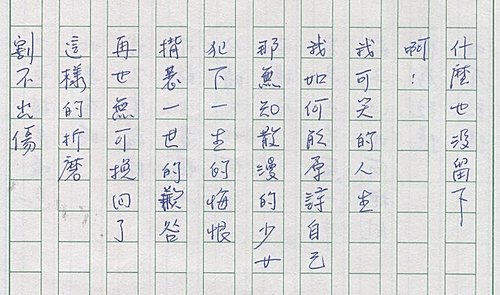 什麼也没留下
啊！
我可笑的人生
我如何能原諒自己
那無知散漫的少女
犯下一生的悔恨
揹著一世的歉咎
再也無可挽回了
這樣的折磨
割不出傷